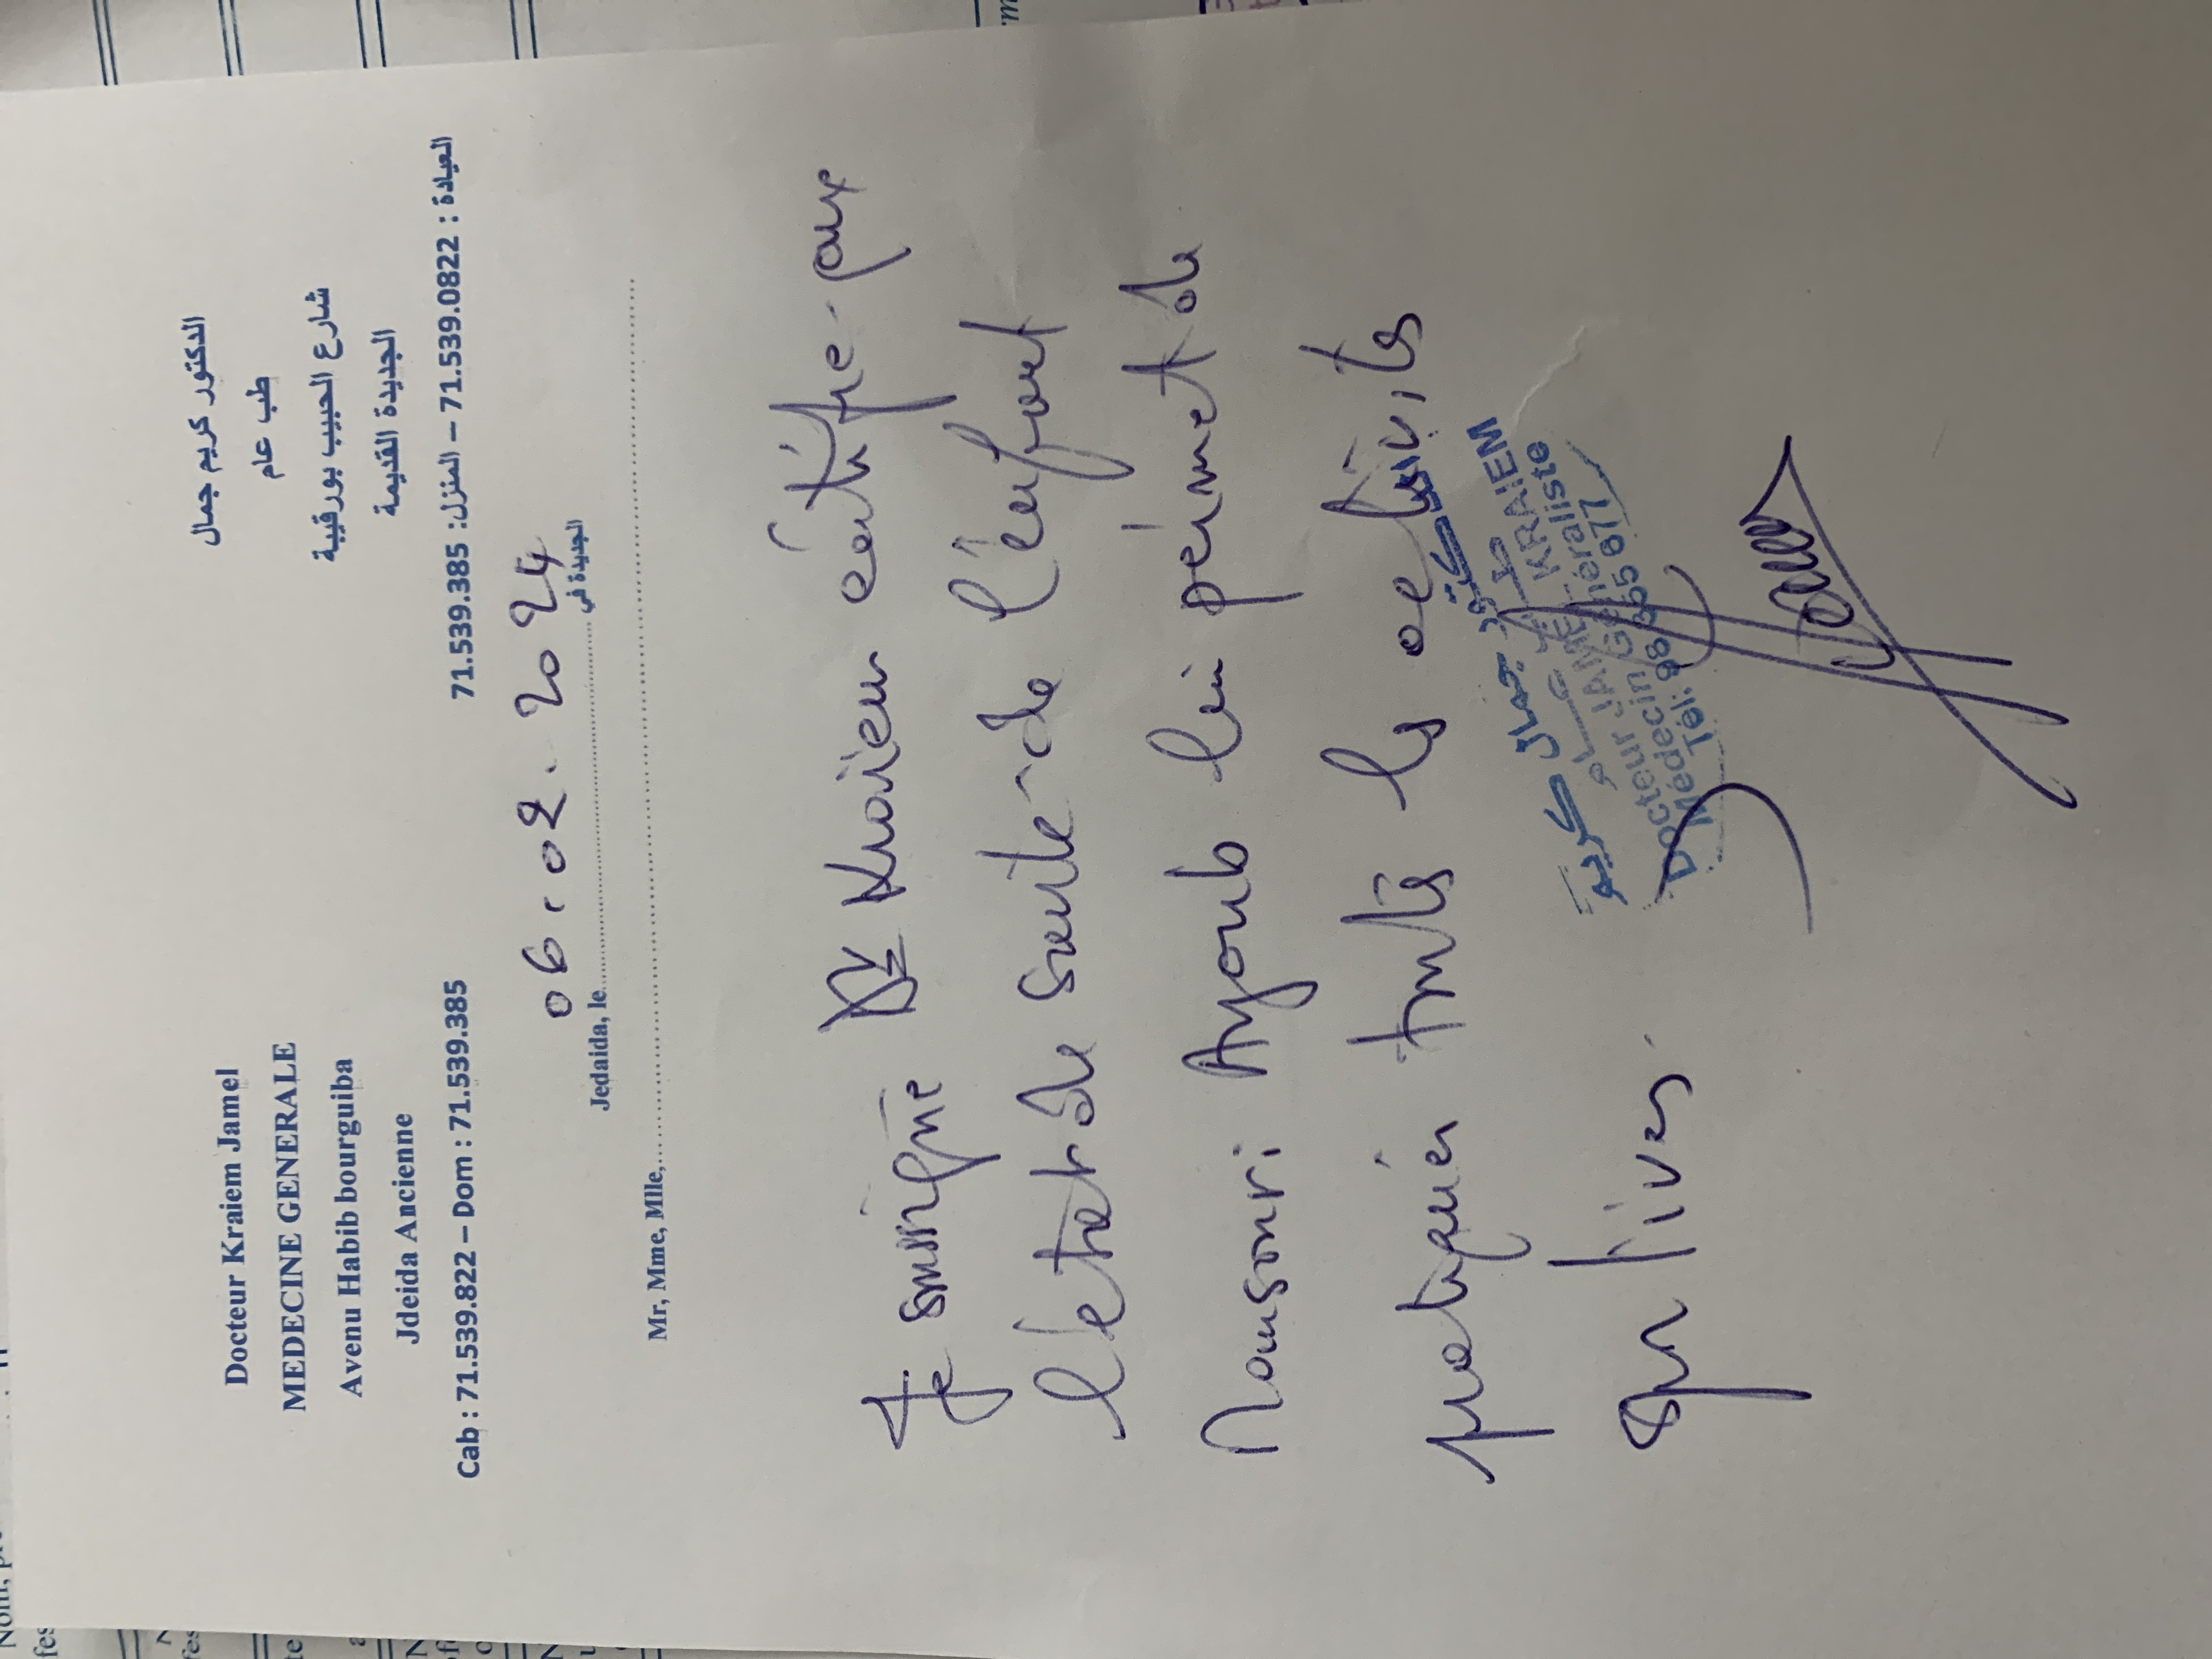 Docteur Kraiem Jamel
MEDECINE GENERALE
Avenu Habib bourguiba
Jdeida Ancienne
Cab : 71.539.822 – Dom : 71.539.385
الدكتور كريم جمال
طب عام
شارع الحبيب بورقيبة
الجديدة القديمة
العيادة : 71.539.0822 – المنزل: 71.539.385
06.02.2024
Jedaida, le.................... الجديدة في
Mr, Mme, Mlle,....................
Je soussigné Dr Kraiem certifie que
l'état de santé de l'enfant
Mansouri Ayoub lui permet de
pratiquer toutes les activités
sportives.
الدكتور جمال كريم
طب عام
Docteur JAMEL KRAIEM
Médecin Généraliste
Tél: 98 365 677